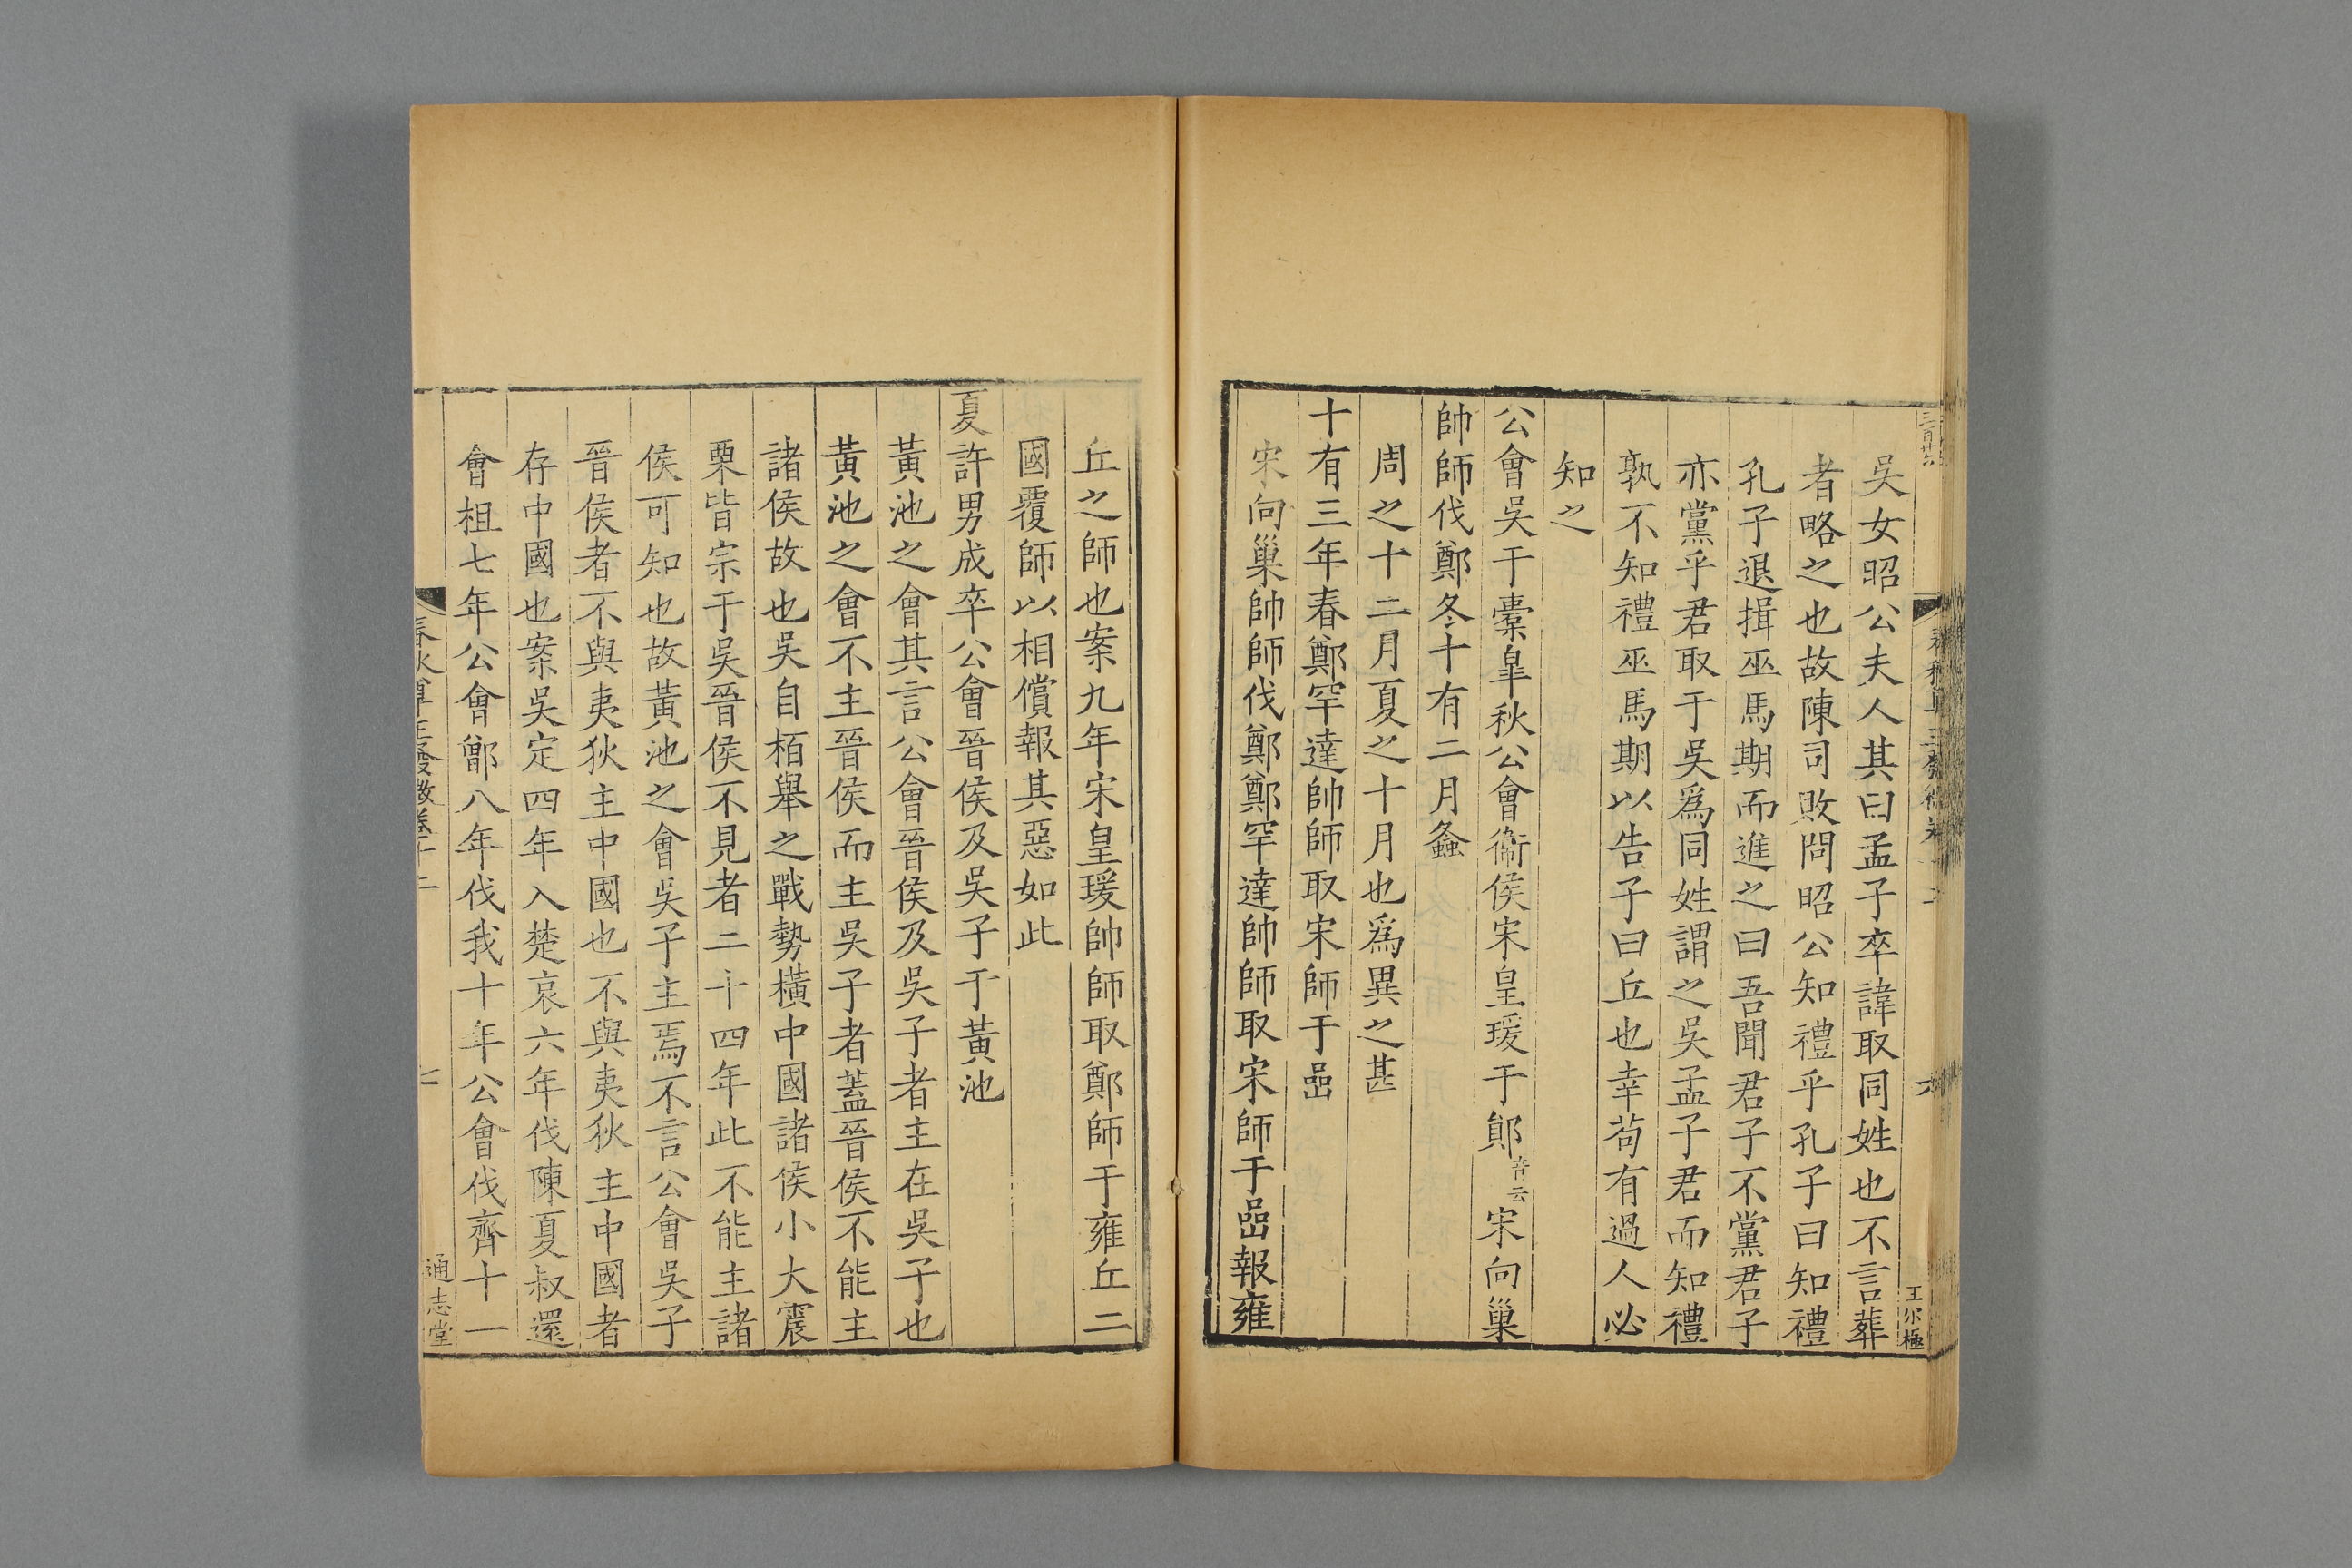 吳女昭公夫人其曰孟子卒諱取同姓也不言葬
者略之也故陳司敗問昭公知禮乎孔子曰知禮
孔子退揖巫馬期而進之曰吾聞君子不黨君子
亦黨乎君取于吳爲同姓謂之吳孟子君而知禮
孰不知禮巫馬期以告子曰丘也幸苟有過人必
知之
公會吳于橐臯秋公會衞侯宋皇瑗于鄖音云宋向巢
帥師伐鄭冬十有二月螽
周之十二月夏之十月也爲異之甚
十有三年春鄭罕達帥師取宋師于嵒
宋向巢帥師伐鄭鄭罕達帥師取宋師于嵒報雍
王尒極
丘之師也案九年宋皇瑗帥師取鄭師于雍丘二
國覆師以相償報其惡如此
夏許男成卒公會晉侯及吳子于黃池
黃池之會其言公會晉侯及吳子者主在吳子也
黃池之會不主晉侯而主吳子者蓋晉侯不能主
諸侯故也吳自栢舉之戰勢橫中國諸侯小大震
栗皆宗于吳晉侯不見者二十四年此不能主諸
侯可知也故黃池之會吳子主焉不言公會吳子
晉侯者不與夷狄主中國也不與夷狄主中國者
存中國也案吳定四年入楚哀六年伐陳夏叔還
會柤七年公會鄫八年伐我十年公會伐齊十一
春秋尊王發微卷十二
通志堂